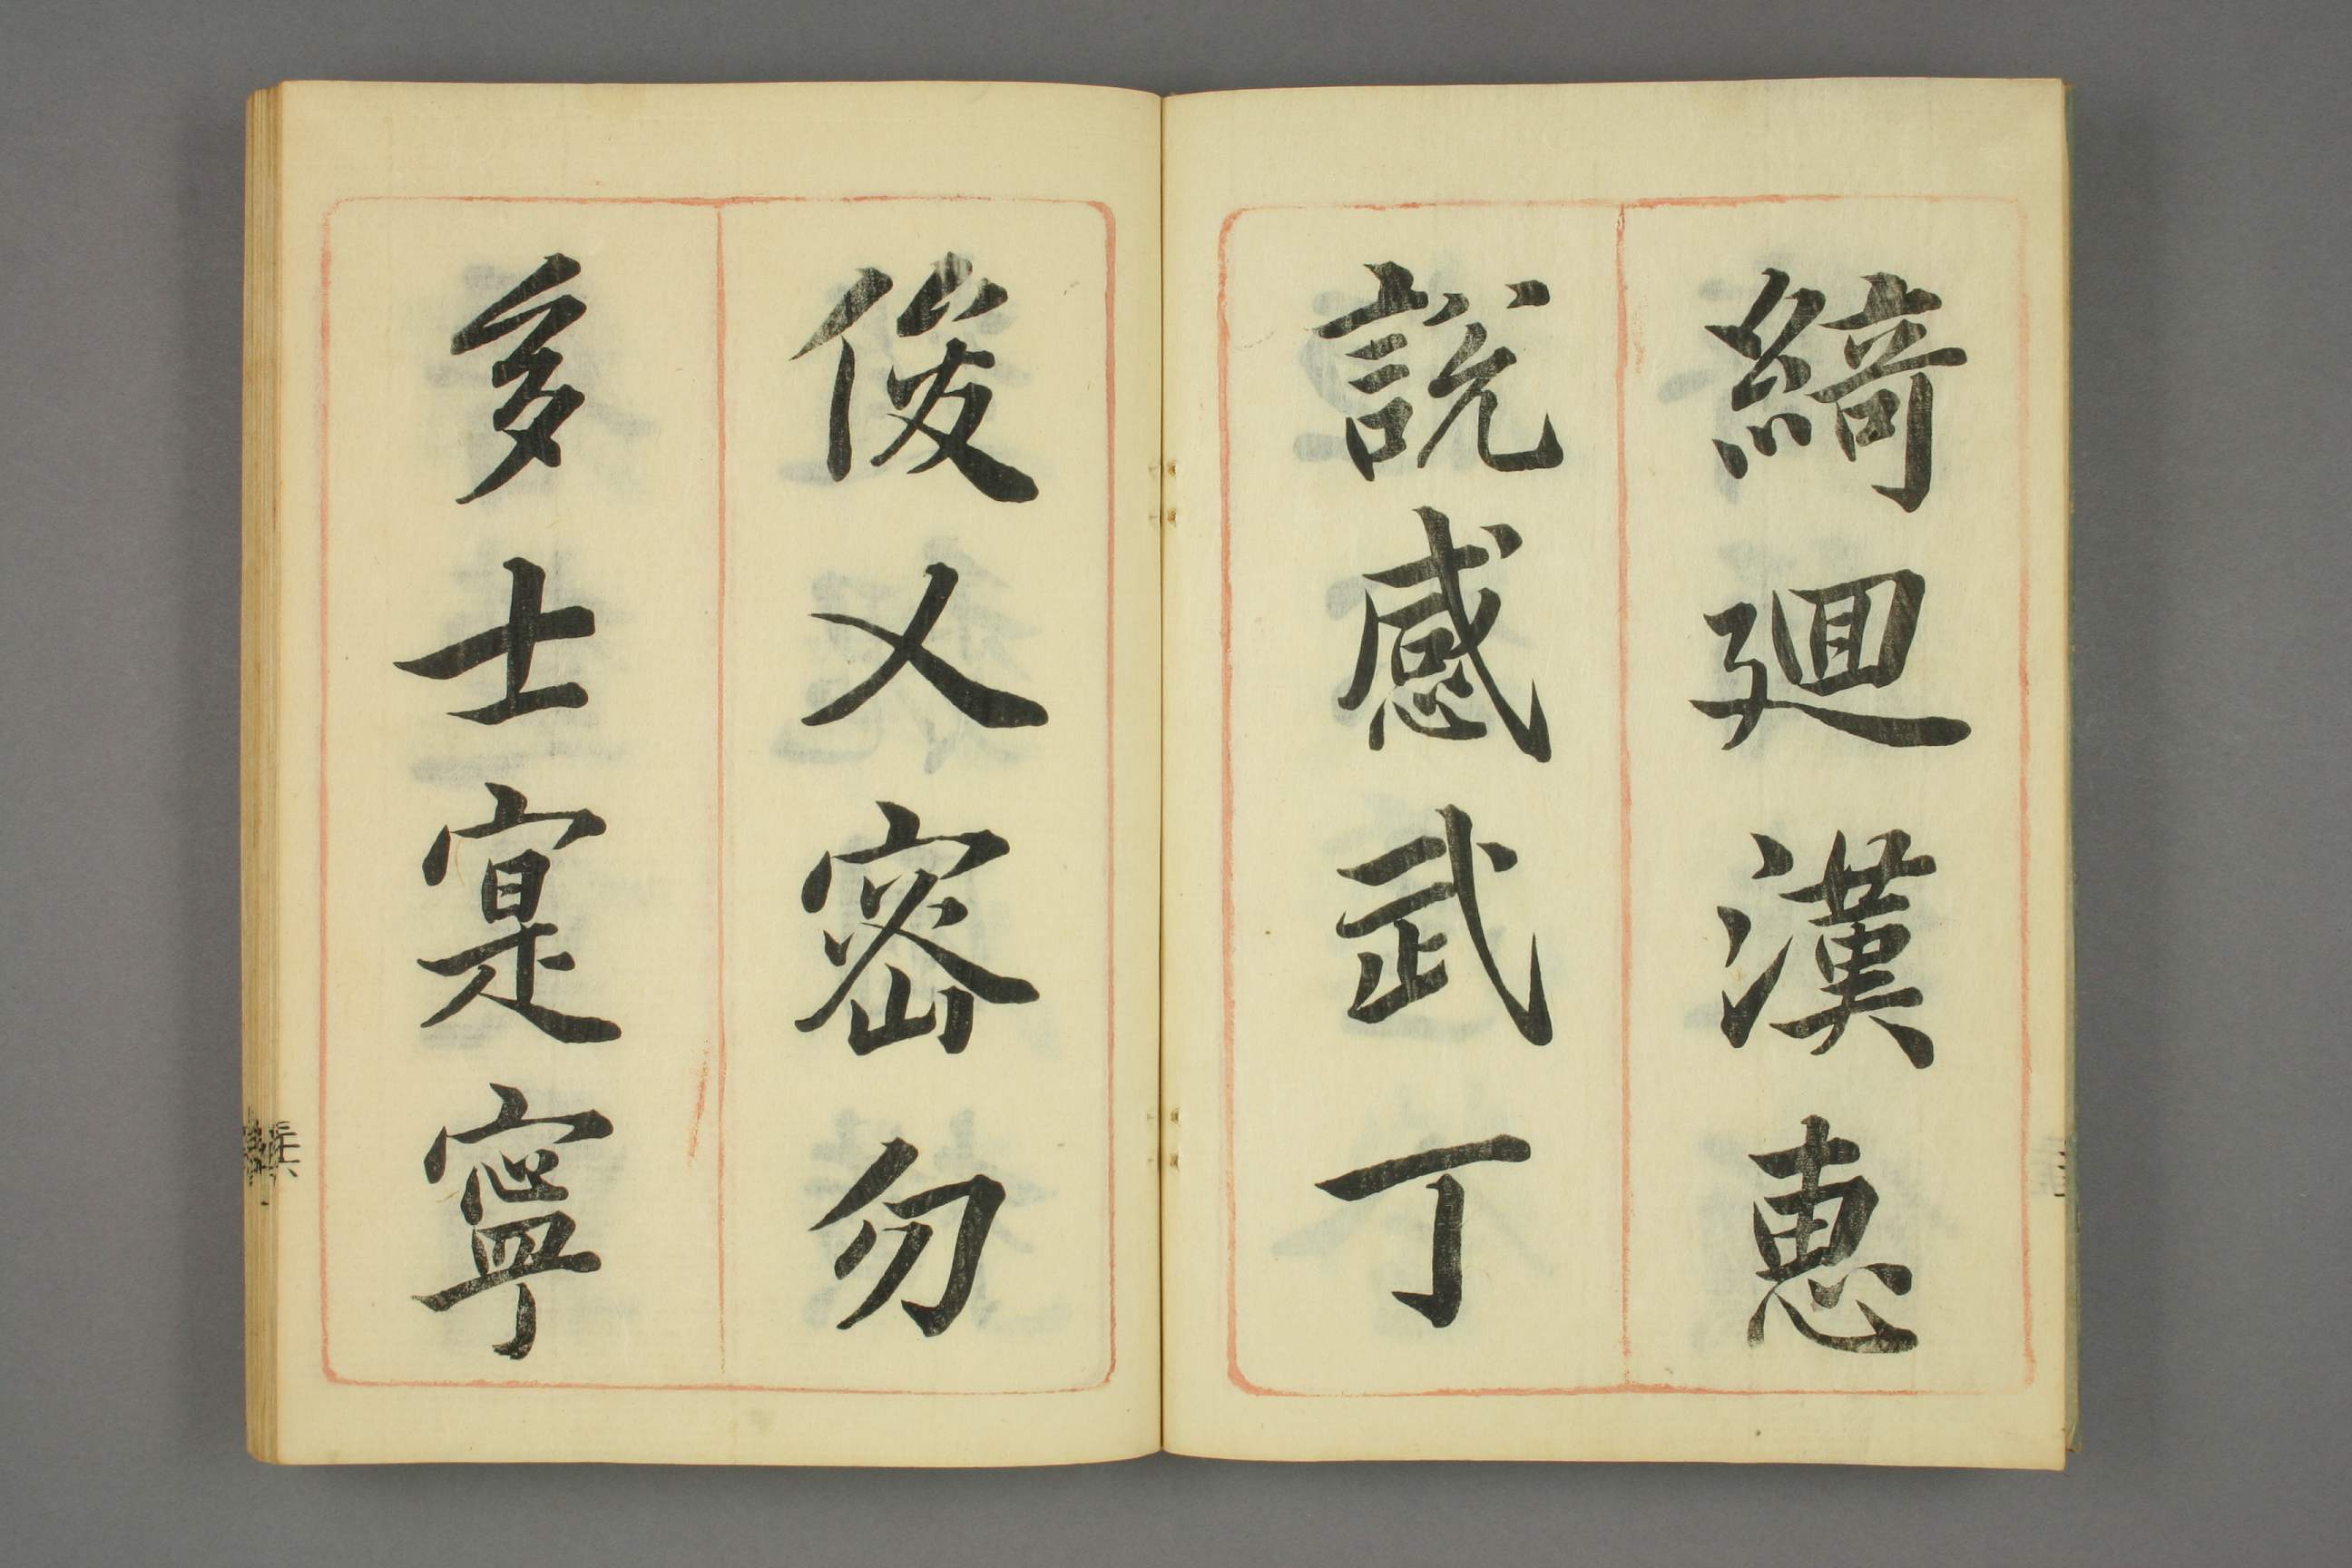 綺廻漢惠
説感武丁
俊乂密勿
多士寔寧